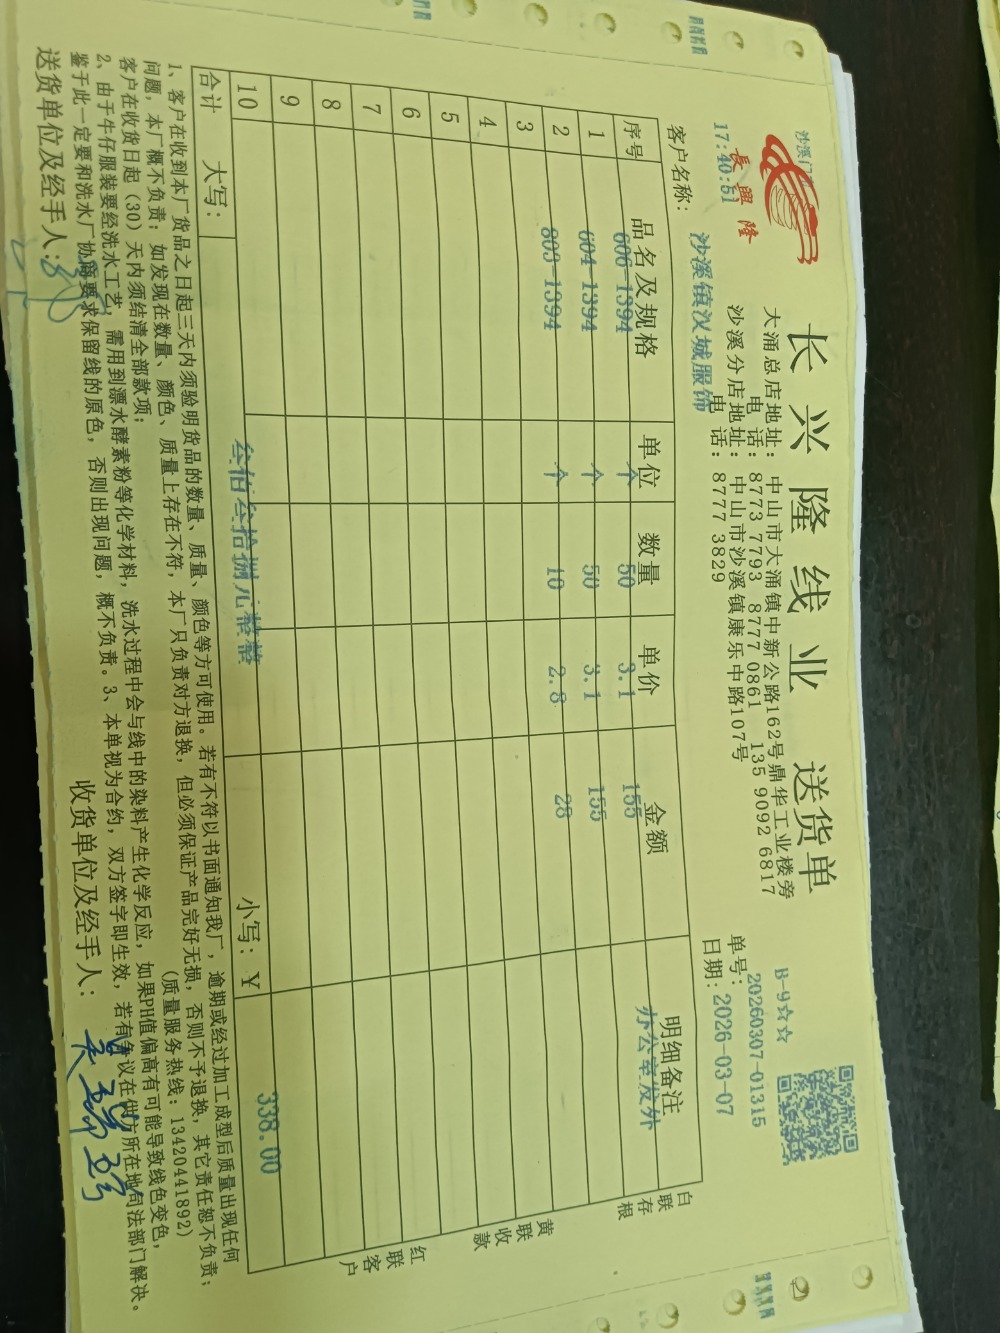 沙溪门
17:40:51
長興隆
长兴隆线业 送货单
大涌总店地址：中山市大涌镇中新公路162号鼎华工业楼旁
电 话：8773 7793 8777 0861 135 9092 6817
沙溪分店地址：中山市沙溪镇康乐中路107号
电 话：8777 3829
B-9☆☆
单号：20260307-01315
日期：2026-03-07
客户名称：沙溪镇汉城服饰
序号 品名及规格 单位 数量 单价 金额 明细备注
1 606-1394 个 50 3.1 155 办公室发外
2 604-1394 个 50 3.1 155
3 803-1394 个 10 2.8 28
4
5
6
7
8
9
10
合计 大写：叁佰叁拾捌元整整 小写：￥ 338.00
白联存根
黄联收款
红联客户
1、客户在收到本厂货品之日起三天内须验明货品的数量、质量、颜色等方可使用。若有不符以书面通知我厂，逾期或经过加工成型后质量出现任何
问题，本厂概不负责；如发现在数量、颜色、质量上存在不符，本厂只负责对方退换，但必须保证产品完好无损，否则不予退换，其它责任恕不负责；
客户在收货日起（30）天内须结清全部款项；
（质量服务热线：13420441892）
2、由于牛仔服装要经洗水工艺，需用到漂水酵素粉等化学材料，洗水过程中会与线中的染料产生化学反应，如果PH值偏高有可能导致线色变色，
鉴于此一定要和洗水厂协商要求保留线的原色，否则出现问题，概不负责。3、本单视为合约，双方签字即生效，若有争议在供方所在地司法部门解决。
送货单位及经手人：
收货单位及经手人：